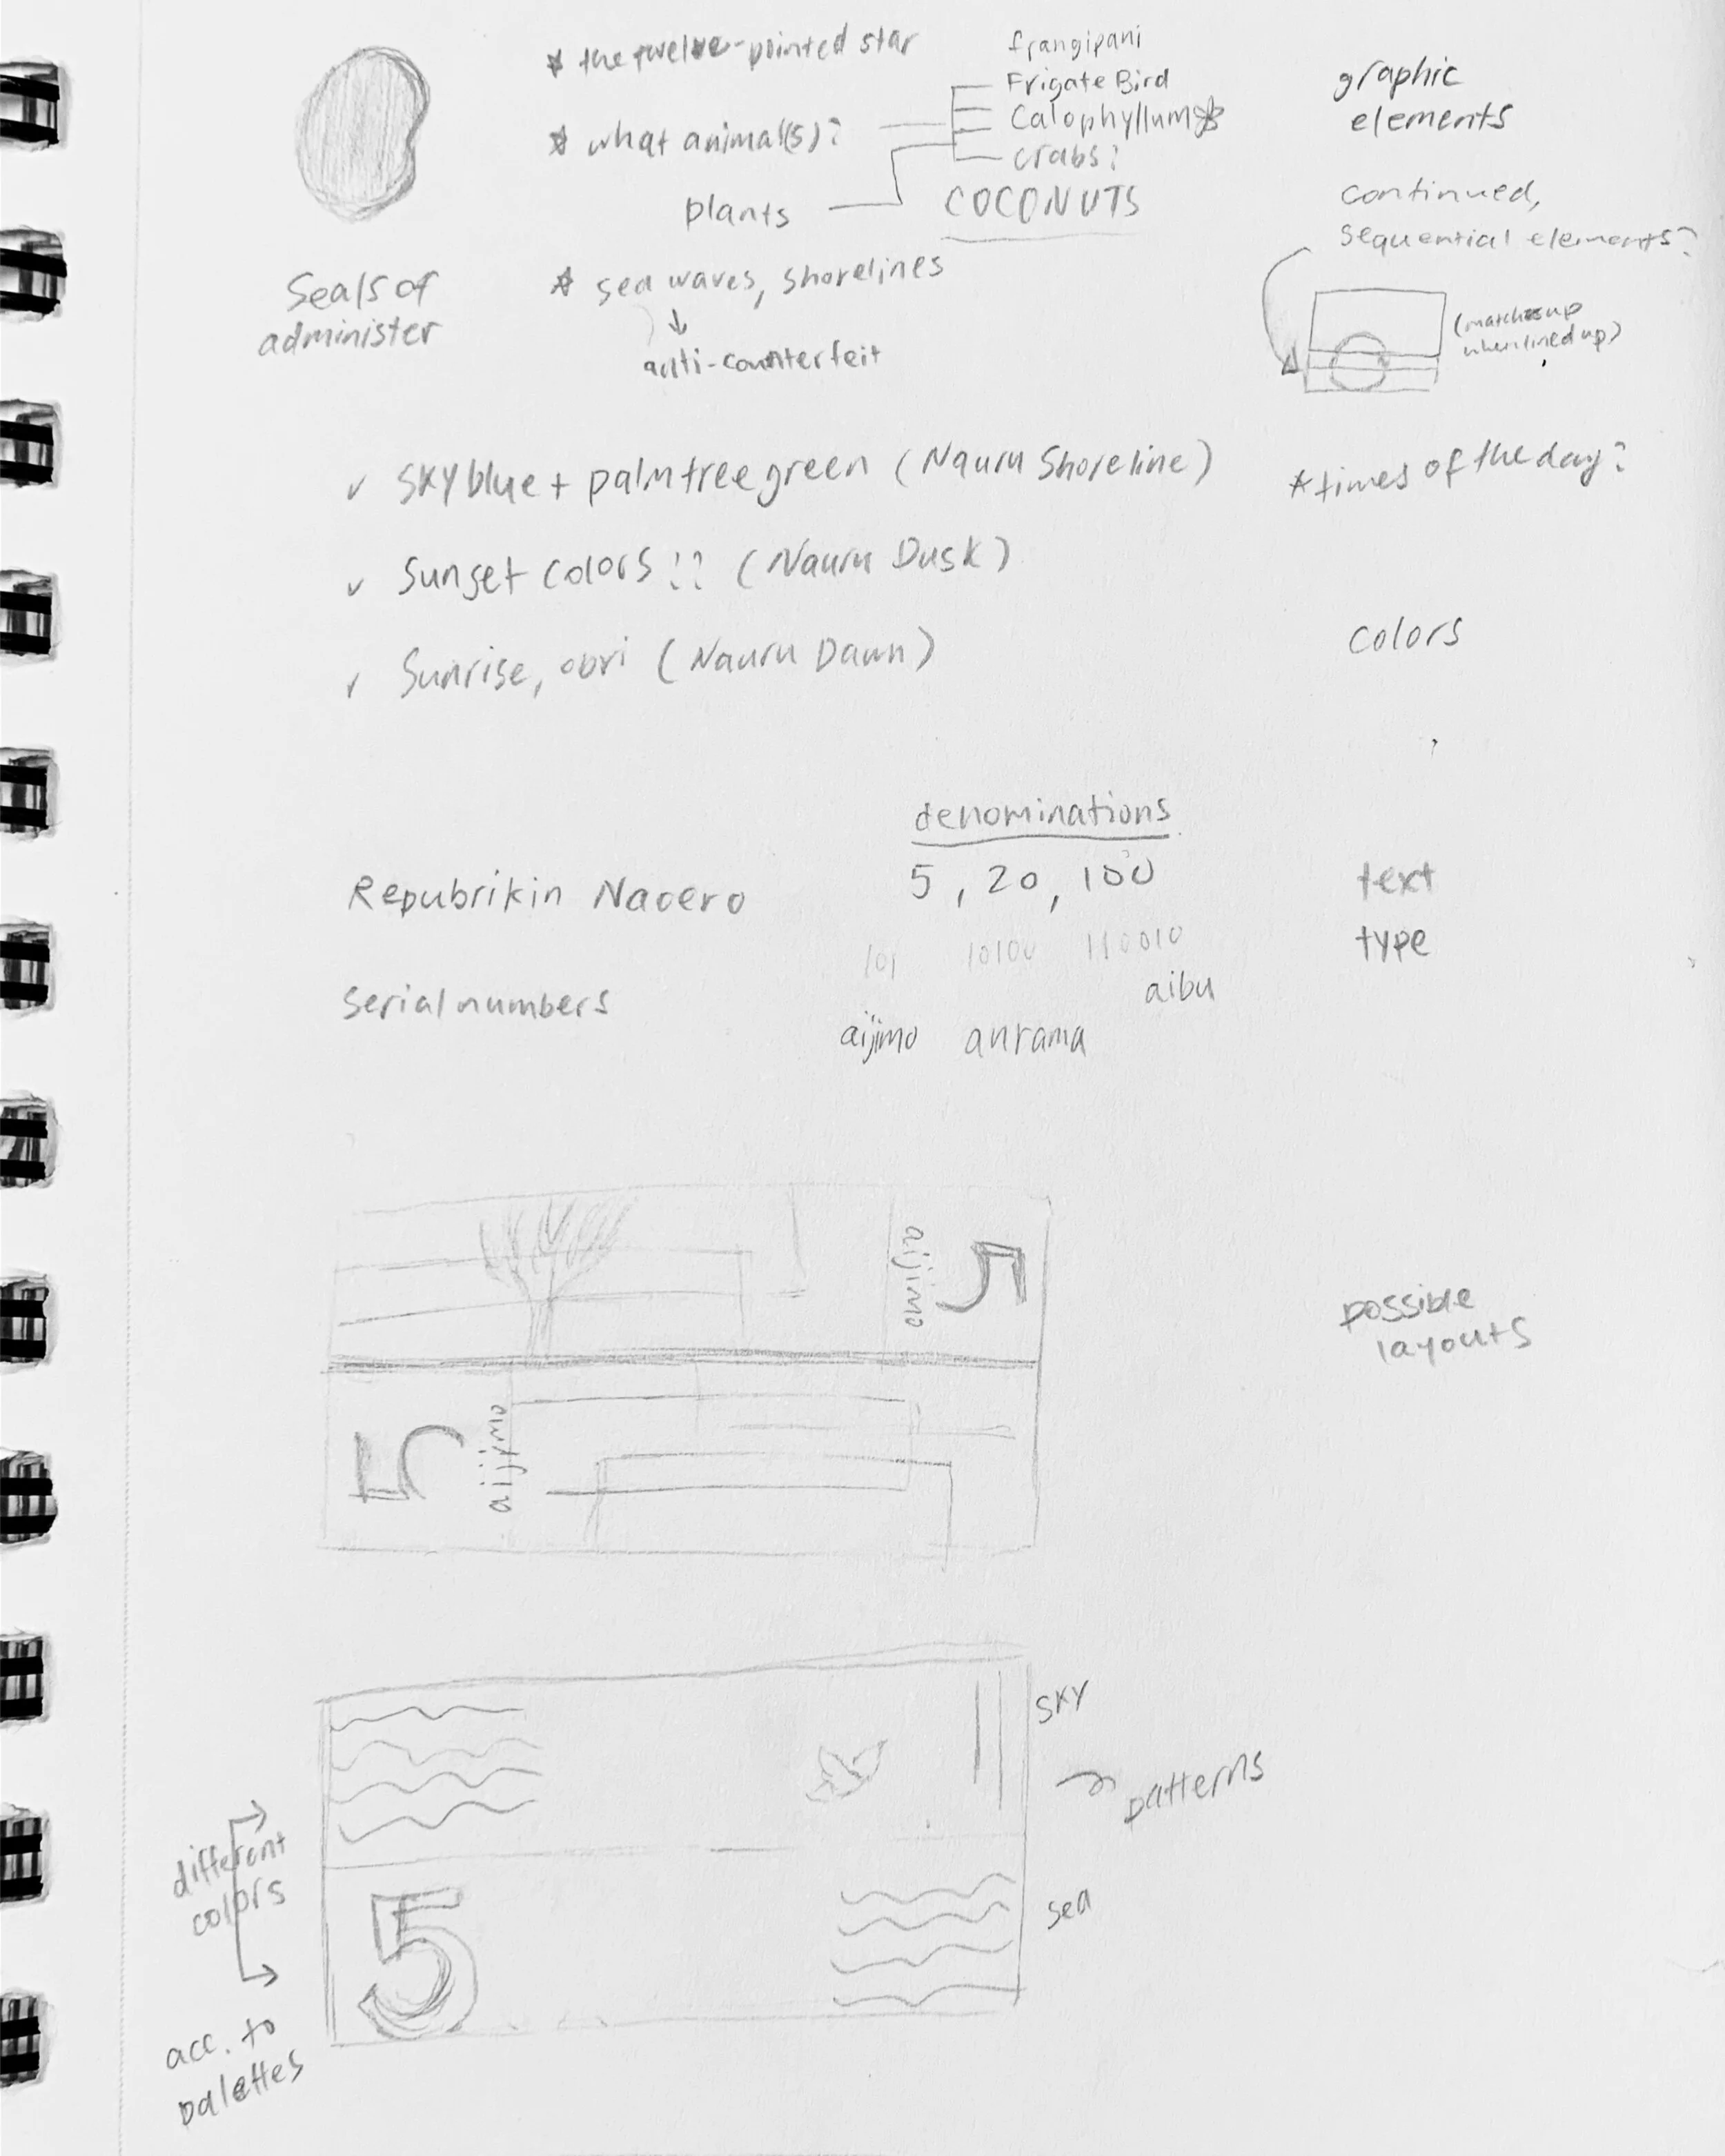 * the twelve-pointed star
frangipani
Frigate Bird
* what animal(s)?
Calophyllum
crabs?
plants
COCONUTS
graphic
elements
continued,
sequential elements?
(matches up
when lined up)
Seals of
administer
* sea waves, shorelines
anti-counterfeit
✓ Sky blue + palm tree green (Nauru Shoreline)
* times of the day?
✓ Sunset colors!! (Nauru Dusk)
✓ Sunrise, obvi (Nauru Dawn)
colors
denominations
Repubrikin Naoero
5, 20, 100
text
type
101 10100 110010
aibu
serial numbers
aijimo anrama
aijimo
5
possible
layouts
5
aijimo
sky
patterns
different
colors
acc. to
palettes
5
sea